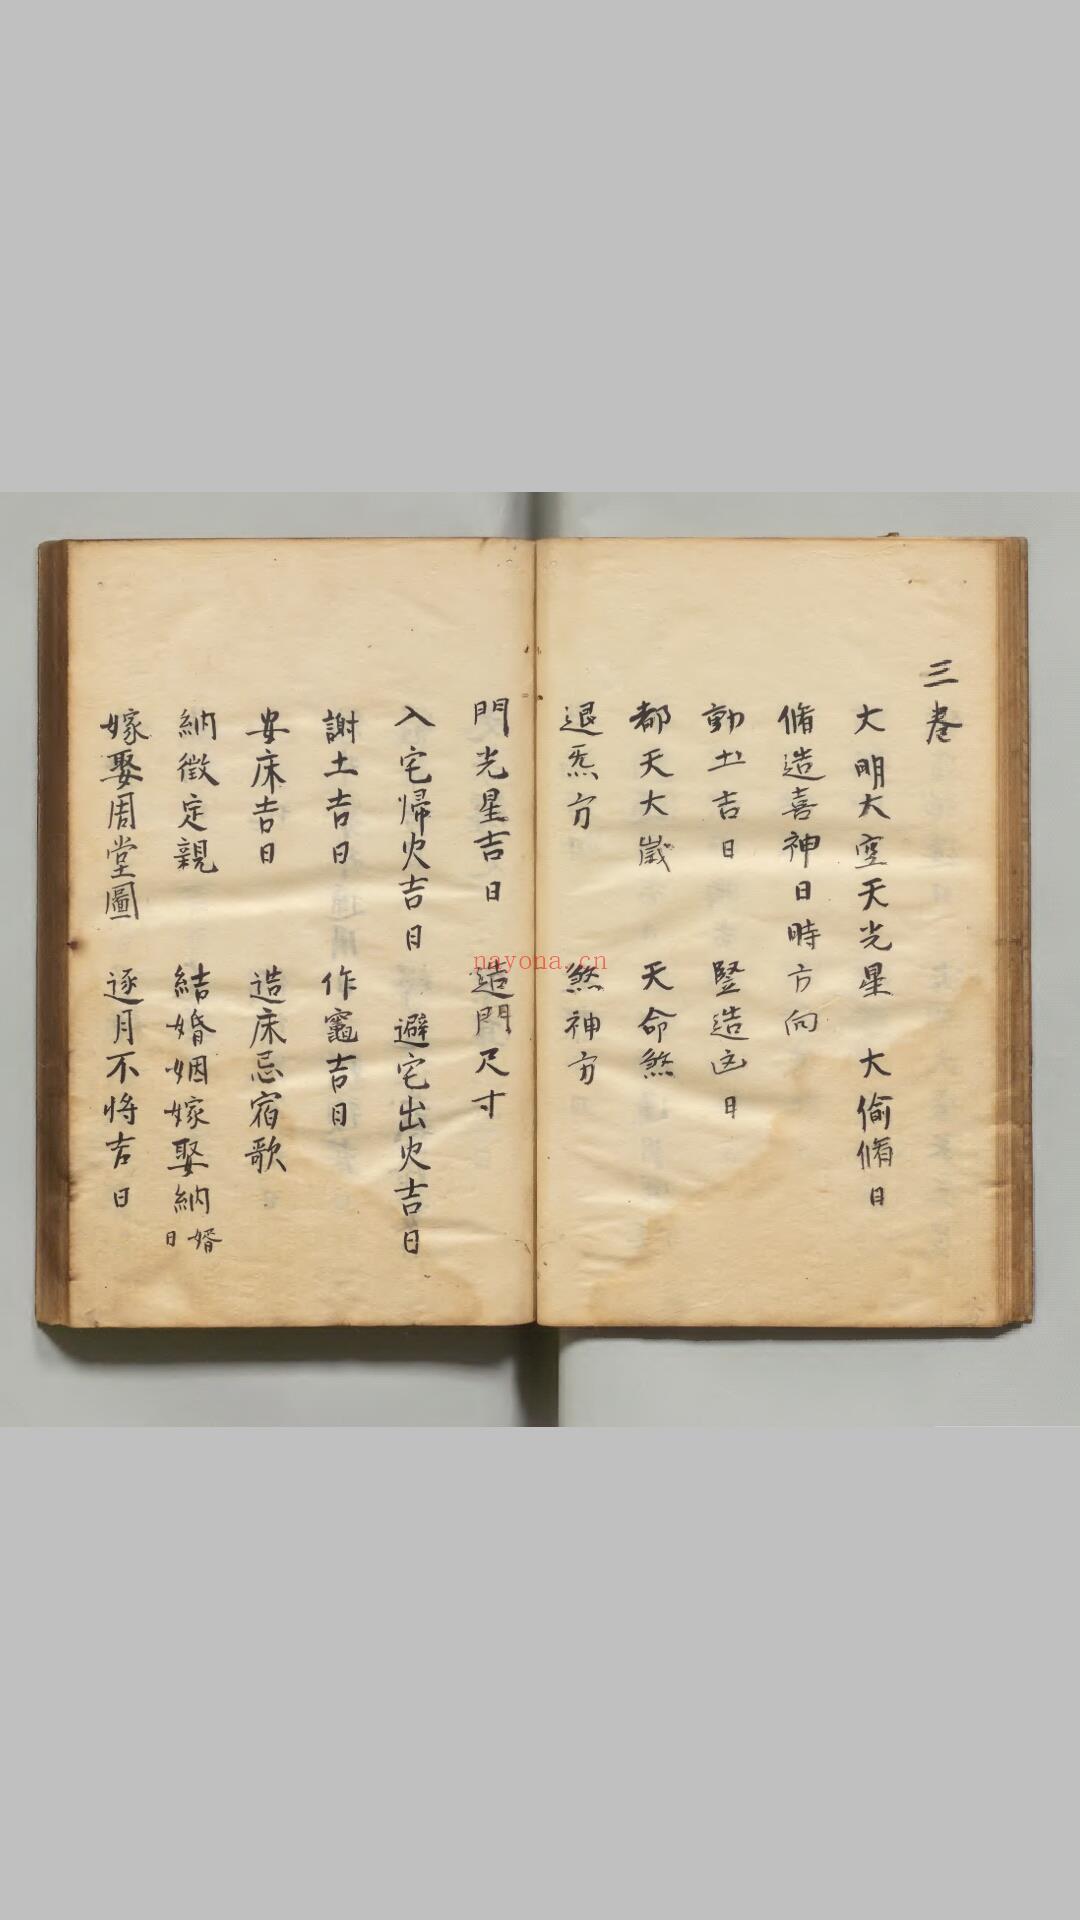 三卷
大明大空天光星　大偷脩日
脩造喜神日時方向
動土吉日　豎造凶日
都天大歲　天命煞
退炁方　煞神方
門光星吉日　造門尺寸
入宅歸火吉日　避宅出火吉日
謝土吉日　作竈吉日
安床吉日　造床忌宿歌
納徵定親　結婚姻嫁娶納婿日
嫁娶周堂圖　逐月不將吉日
nayona.cn